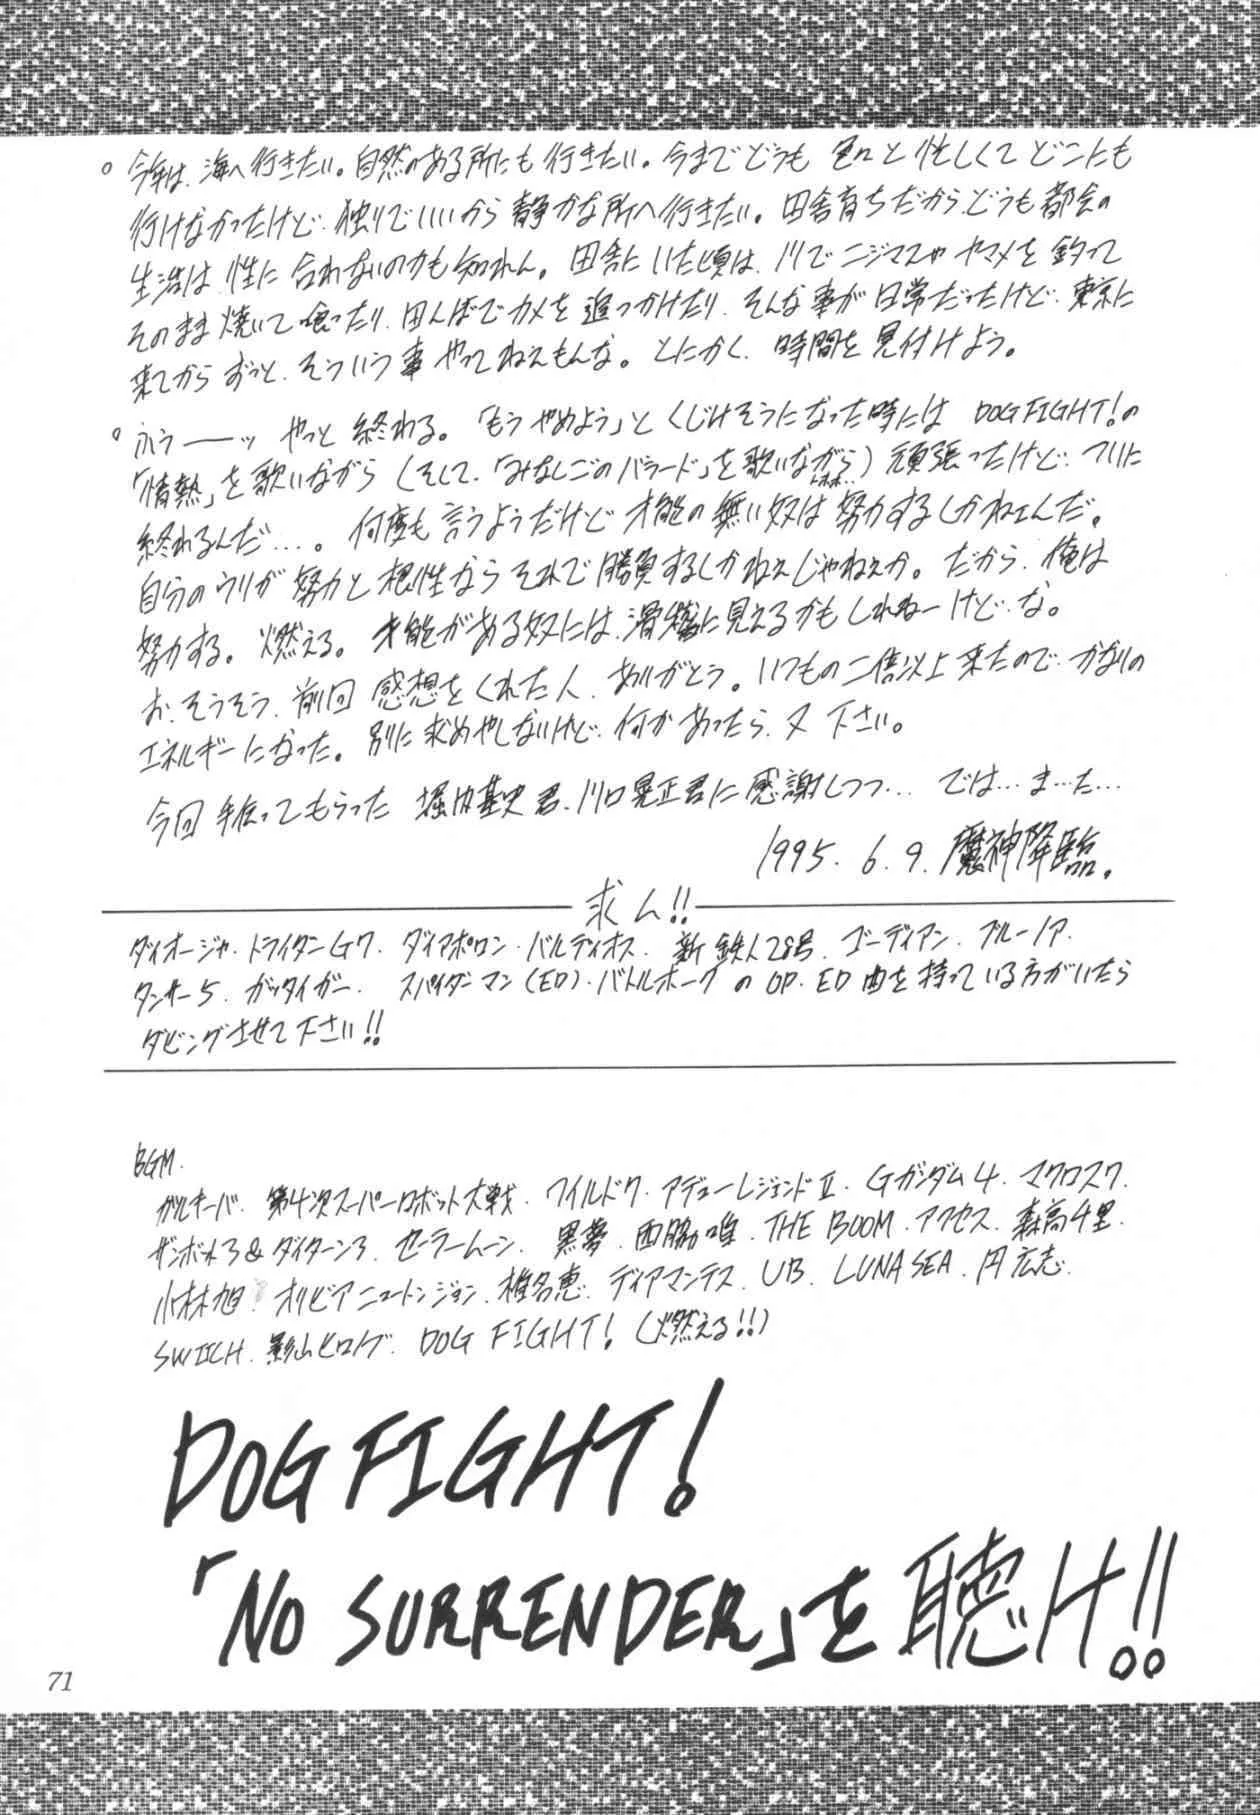 ○今年は、海へ行きたい。自然のある所にも行きたい。今までどうも色々と忙しくてどこにも
行けなかったけど、独りでいいから静かな所へ行きたい。田舎育ちだからどうも都会の
生活は性に合わないのかも知れん。田舎にいた頃は、川でニジマスやヤマメを釣って
そのまま焼いて喰ったり、田んぼでカメを追っかけたり、そんな事が日常だったけど、東京に
来てからずっと、そういう事やってねえもんな。とにかく、時間を見付けよう。
○ふうーーッ やっと終わる。「もうやめよう」とくじけそうになった時には DOG FIGHT!の
「情熱」を歌いながら(そして、「みなしごのバラード」を歌いながら)頑張ったけど、ついに
終わるんだ…。何度も言うようだけど才能の無い奴は努力するしかねェんだ。
自分のウリが努力と根性ならそれで勝負するしかねえじゃねえか。だから、俺は
努力する。燃える。才能がある奴には、滑稽に見えるかもしれねーけど、な。
お、そうそう、前回感想をくれた人、ありがとう。いつもの二倍以上来たので、かなりの
エネルギーになった。別に求めやしないけど、何かあったら、又下さい。
今回手伝ってもらった 堀内基史君、川口晃正君に感謝しつつ… では…ま…た…
1995.6.9.魔神降臨.
求ム!!
ダイオージャ・トライダーG7・ダイアポロン・バルディオス・新鉄人28号・ゴーディアン・ブルーノア・
タンサー5・ガッタイガー・スパイダーマン(ED)・バトルホークのOP・ED曲を持っている方がいたら
ダビングさせて下さい!!
BGM.
ガルキーバ、第4次スーパーロボット大戦、ワイルド7・アデューレジェンドⅡ・Gガンダム4・マクロス7・
ザンボット3&ダイターン3・セーラームーン、黒夢、西脇唯・THE BOOM・アクセス・森高千里・
小林旭・オリビアニュートンジョン、椎名恵・ディアマンテス・UB・LUNA SEA・円広志・
SWITCH・影山ヒロノブ・DOG FIGHT!(燃える!!)
DOG FIGHT!
「NO SURRENDER」を聴け!!
71